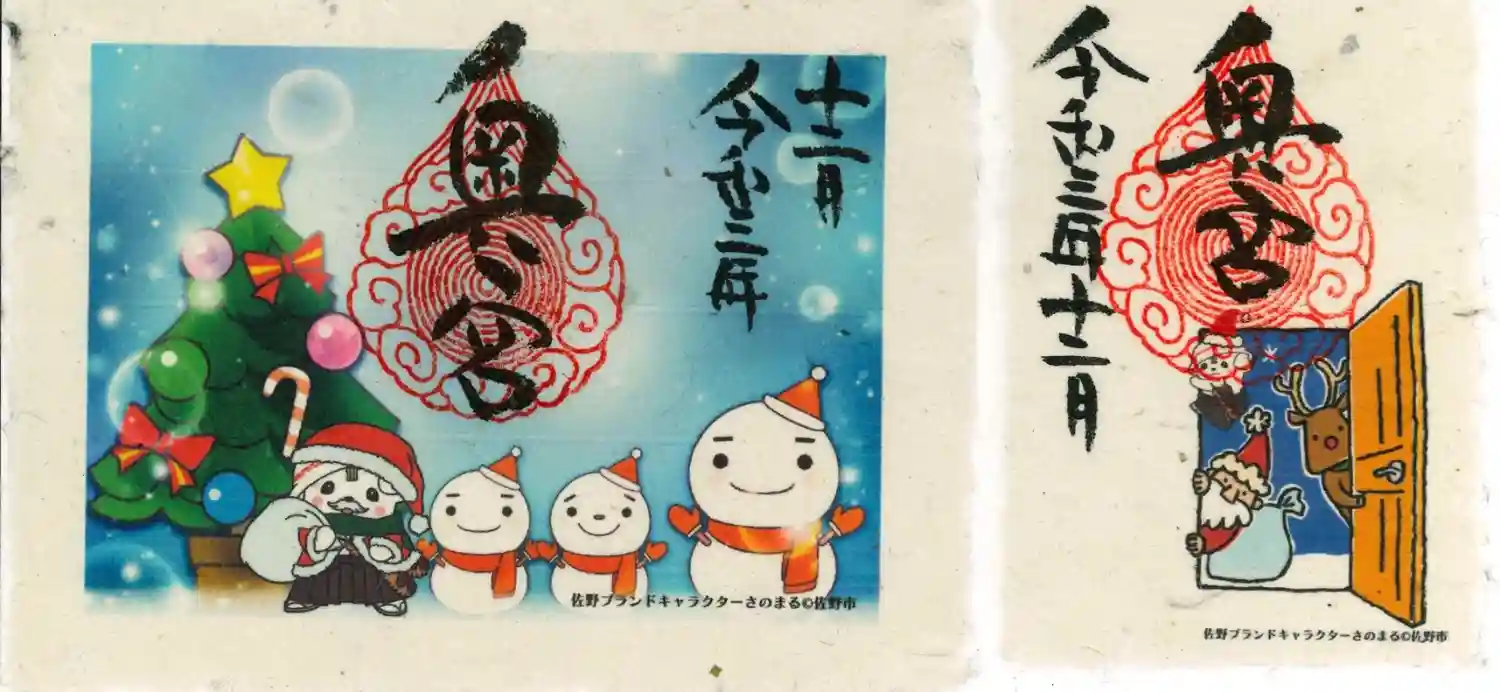 十二月
令和三年
奥宮
佐野ブランドキャラクターさのまる©佐野市
奥宮
令和三年十二月
佐野ブランドキャラクターさのまる©佐野市